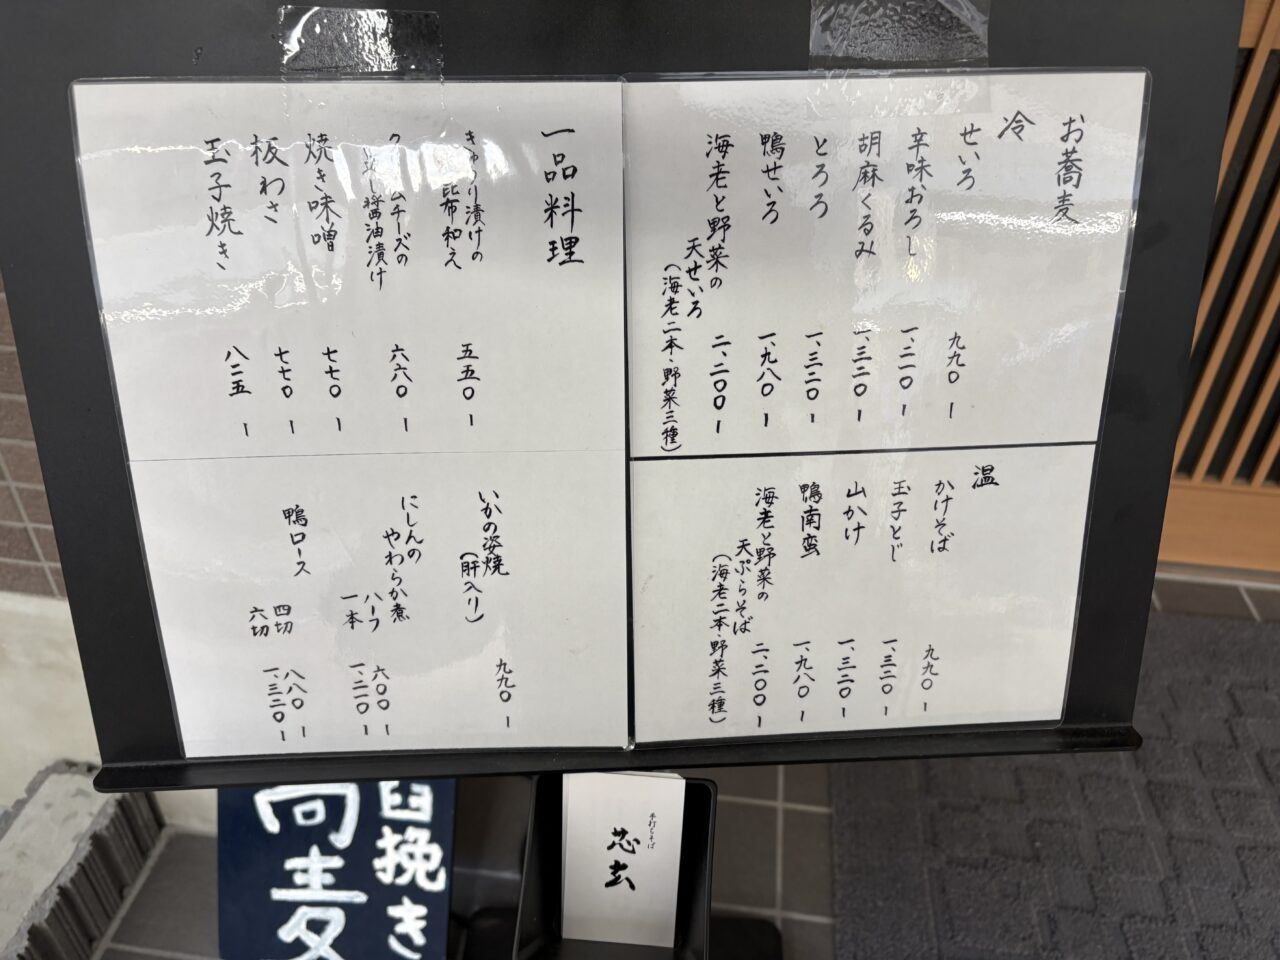 お蕎麦
冷
せいろ 九九〇ー
辛味おろし 一、二一〇ー
胡麻くるみ 一、三二〇ー
とろろ 一、三二〇ー
鴨せいろ 一、九八〇ー
海老と野菜の
天せいろ 二、二〇〇ー
(海老二本・野菜三種)
温
かけそば 九九〇ー
玉子とじ 一、三二〇ー
山かけ 一、三二〇ー
鴨南蛮 一、九八〇ー
海老と野菜の
天ぷらそば 二、二〇〇ー
(海老二本・野菜三種)
一品料理
きゅうり漬けの
昆布和え 五五〇ー
クリームチーズの
醤油漬け 六六〇ー
焼き味噌 七七〇ー
板わさ 七七〇ー
玉子焼き 八二五ー
いかの姿焼
(肝入り) 九九〇ー
にしんの
やわらか煮
ハーフ 六〇〇ー
一本 一、二〇ー
鴨ロース
四切 八八〇ー
六切 一、三二〇ー
臼挽き
蕎麦
手打ちそば
芯玄